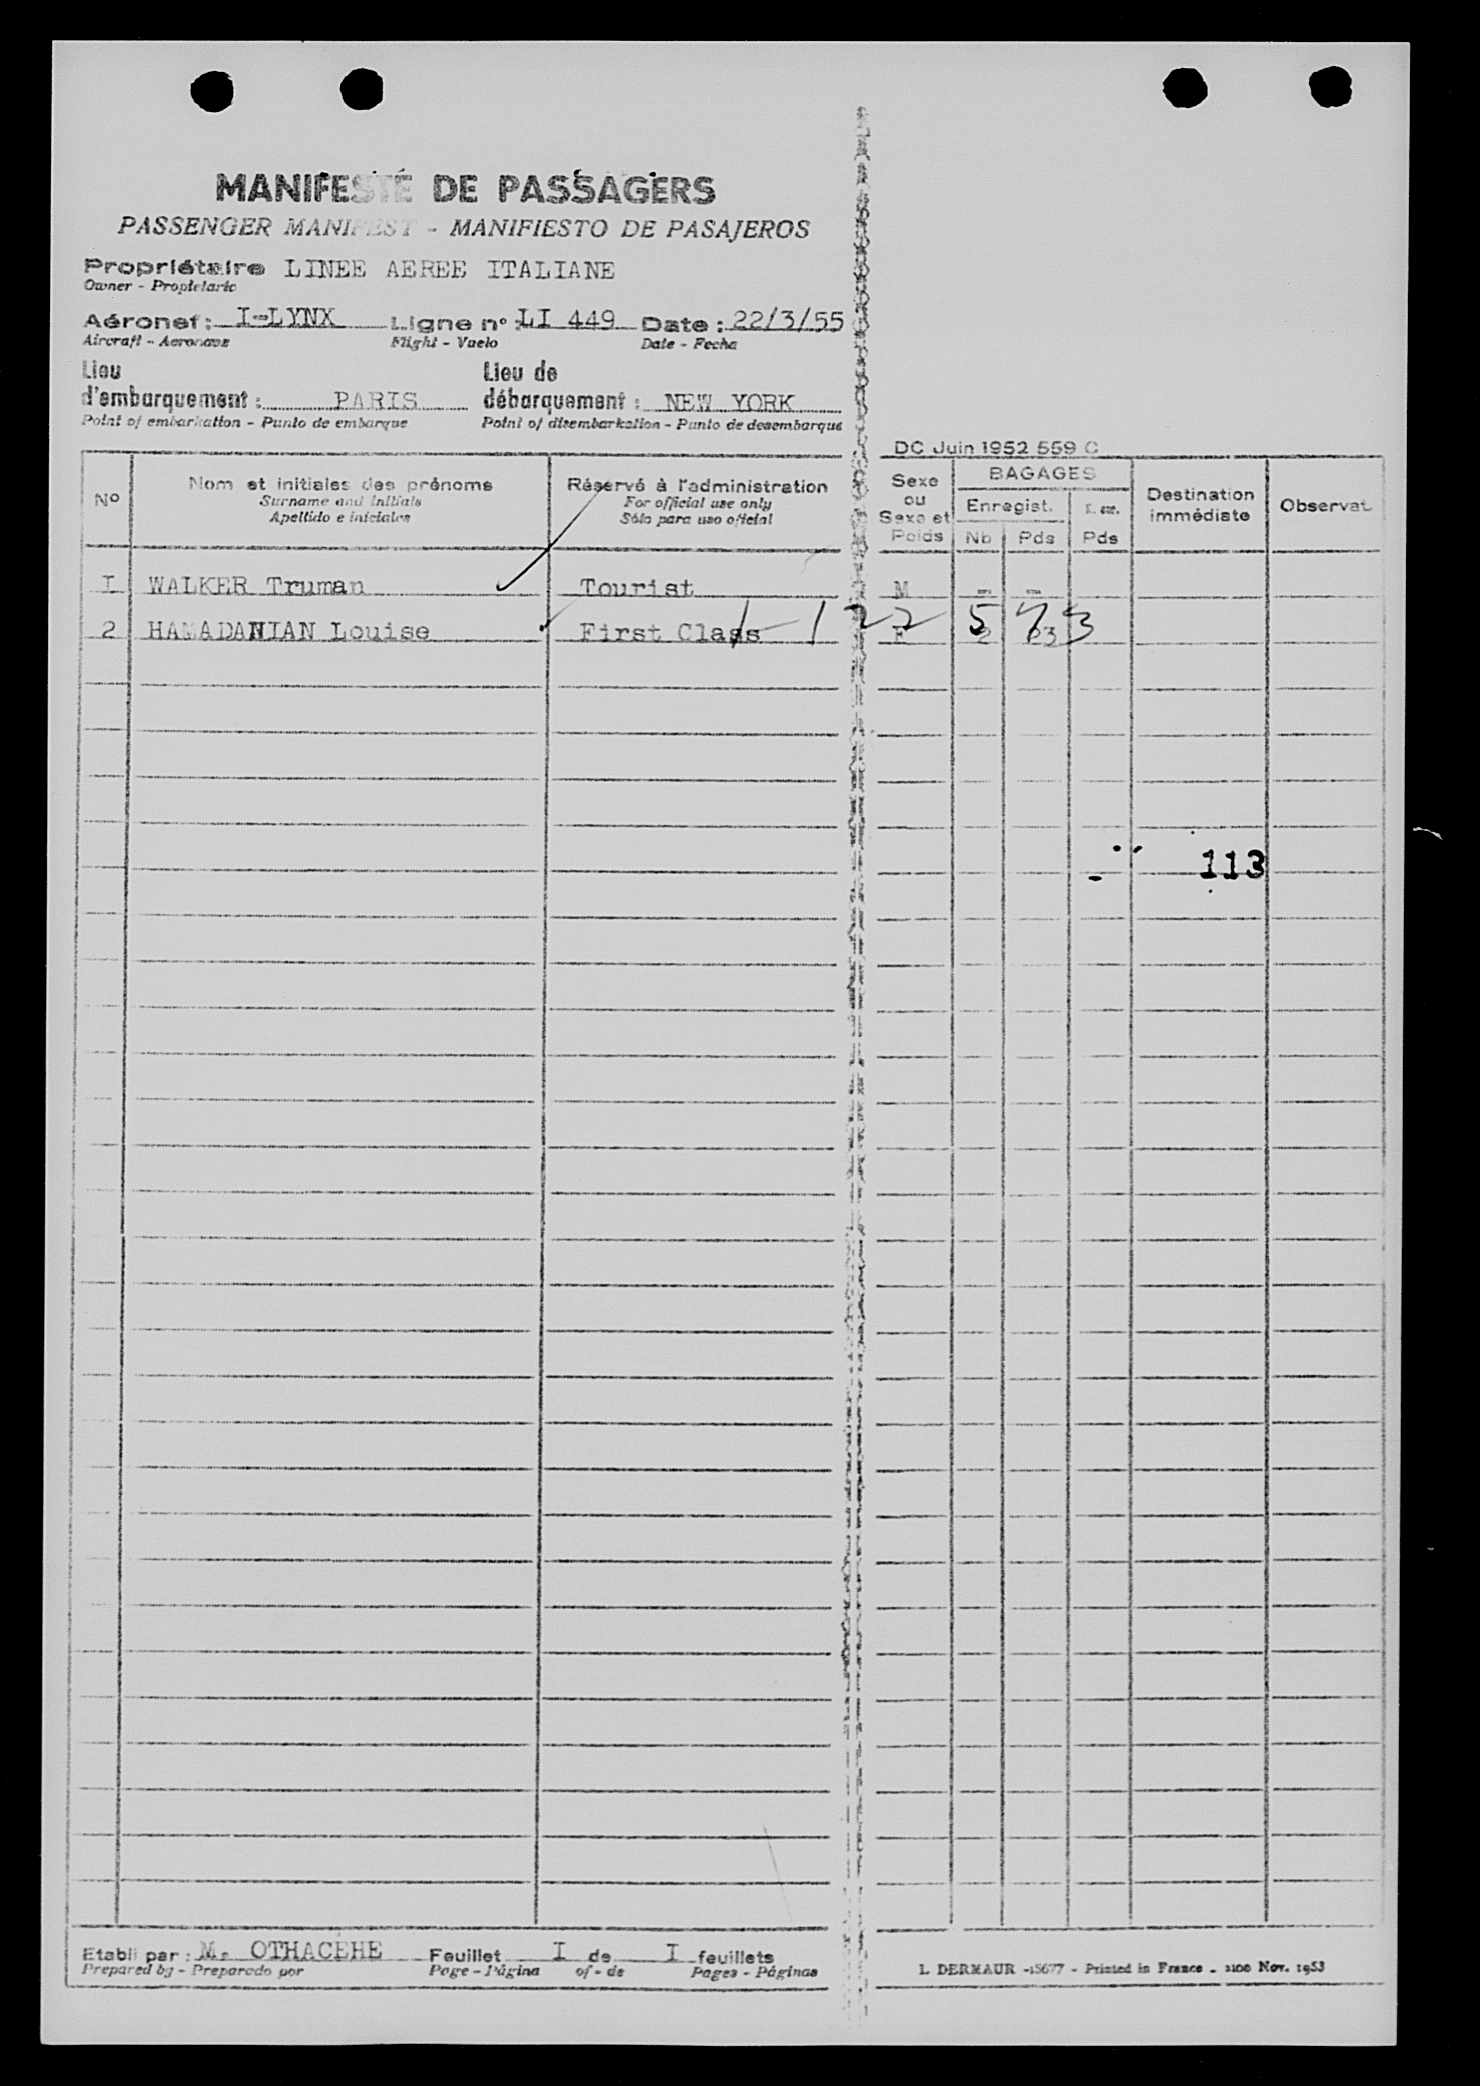 MANIFESTE DE PASSAGERS
PASSENGER MANIFEST - MANIFIESTO DE PASAJEROS
Propriétaire LINEE AEREE ITALIANE
Owner - Propietario
Aéronef : I-LYNX Ligne n° : LI 449 Date : 22/3/55
Aircraft - Aeronave Flight - Vuelo Date - Fecha
Lieu d'embarquement : PARIS Lieu de débarquement : NEW YORK
Point of embarkation - Punto de embarque Point of disembarkation - Punto de desembarque
DC Juin 1952 559 C
N° Nom et initiales des prénoms Réservé à l'administration Sexe ou Sexe et Poids BAGAGES Destination immédiate Observat.
Surname and initials For official use only Enregist.
Apellido e iniciales Sólo para uso oficial Nb Pds Pds
I WALKER Truman Tourist M
2 HAMADANIAN Louise First Class F 2
1 22 5 73
113
Etabli par : M. OTHACEHE Feuillet I de I feuillets
Prepared by - Preparedo por Page - Página of - de Pages - Páginas
L. DERMAUR - 15677 - Printed in France - 2100 Nov. 1953